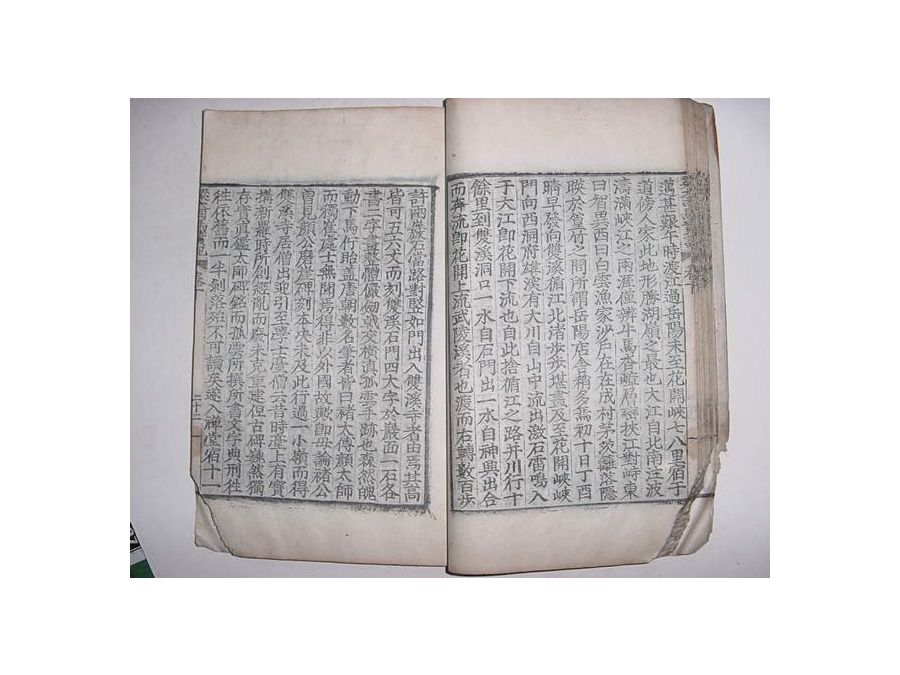 蕅甚艱云時渡江過岳陽未至花開峽七八里宿于
道傍人家此地形勝湖嶺之最也大江自北南注波
濤滿峽江之兩涯僅辨牛馬層巒屬䃮挾江對峙東
曰智異西曰白雲漁家沙戶在在成村茅茨籬落隱
暎於篁竹之間所謂岳陽店舍稍多焉初十日丁酉
時早發向雙溪循江北渚步步堪畫及至花開峽峽
門向西洞府雄深有大川自山中流出激石雷鳴入
于大江即花開下流也自此捨循江之路并川行十
餘里到雙溪洞口一水自石門出一水自神興出合
而奔流即花開上流武陵溪者也渡而右轉數百步
許兩崖石當路對竪如門出入雙溪寺者由焉其高
皆可五六丈而刻雙溪石門四大字於巖面一石各
書二字畫整體儼劒戟交橫眞孤雲手跡也森然醜
動下馬行胎盖唐朝數名筆者皆曰褚太傅顔太師
而獨崔處士無聞焉得非以外國故歟卽毋論褚公
曾見顔公麽姑碑刻本決未及此行過一小嶺而得
雙溪寺居僧出迎引至學士臺僧云昔時臺上有寶
搆新羅時所創經亂而廢未克重建但古碑巍然獨
存實眞鑑太師碑銘而孤雲所撰所書文字典刑往
往依舊而一半剝落殆不可讀矣遂入禪堂宿十一